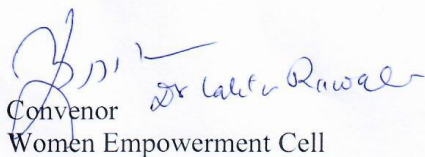 Dr Lalita Rawal
Convenor
Women Empowerment Cell